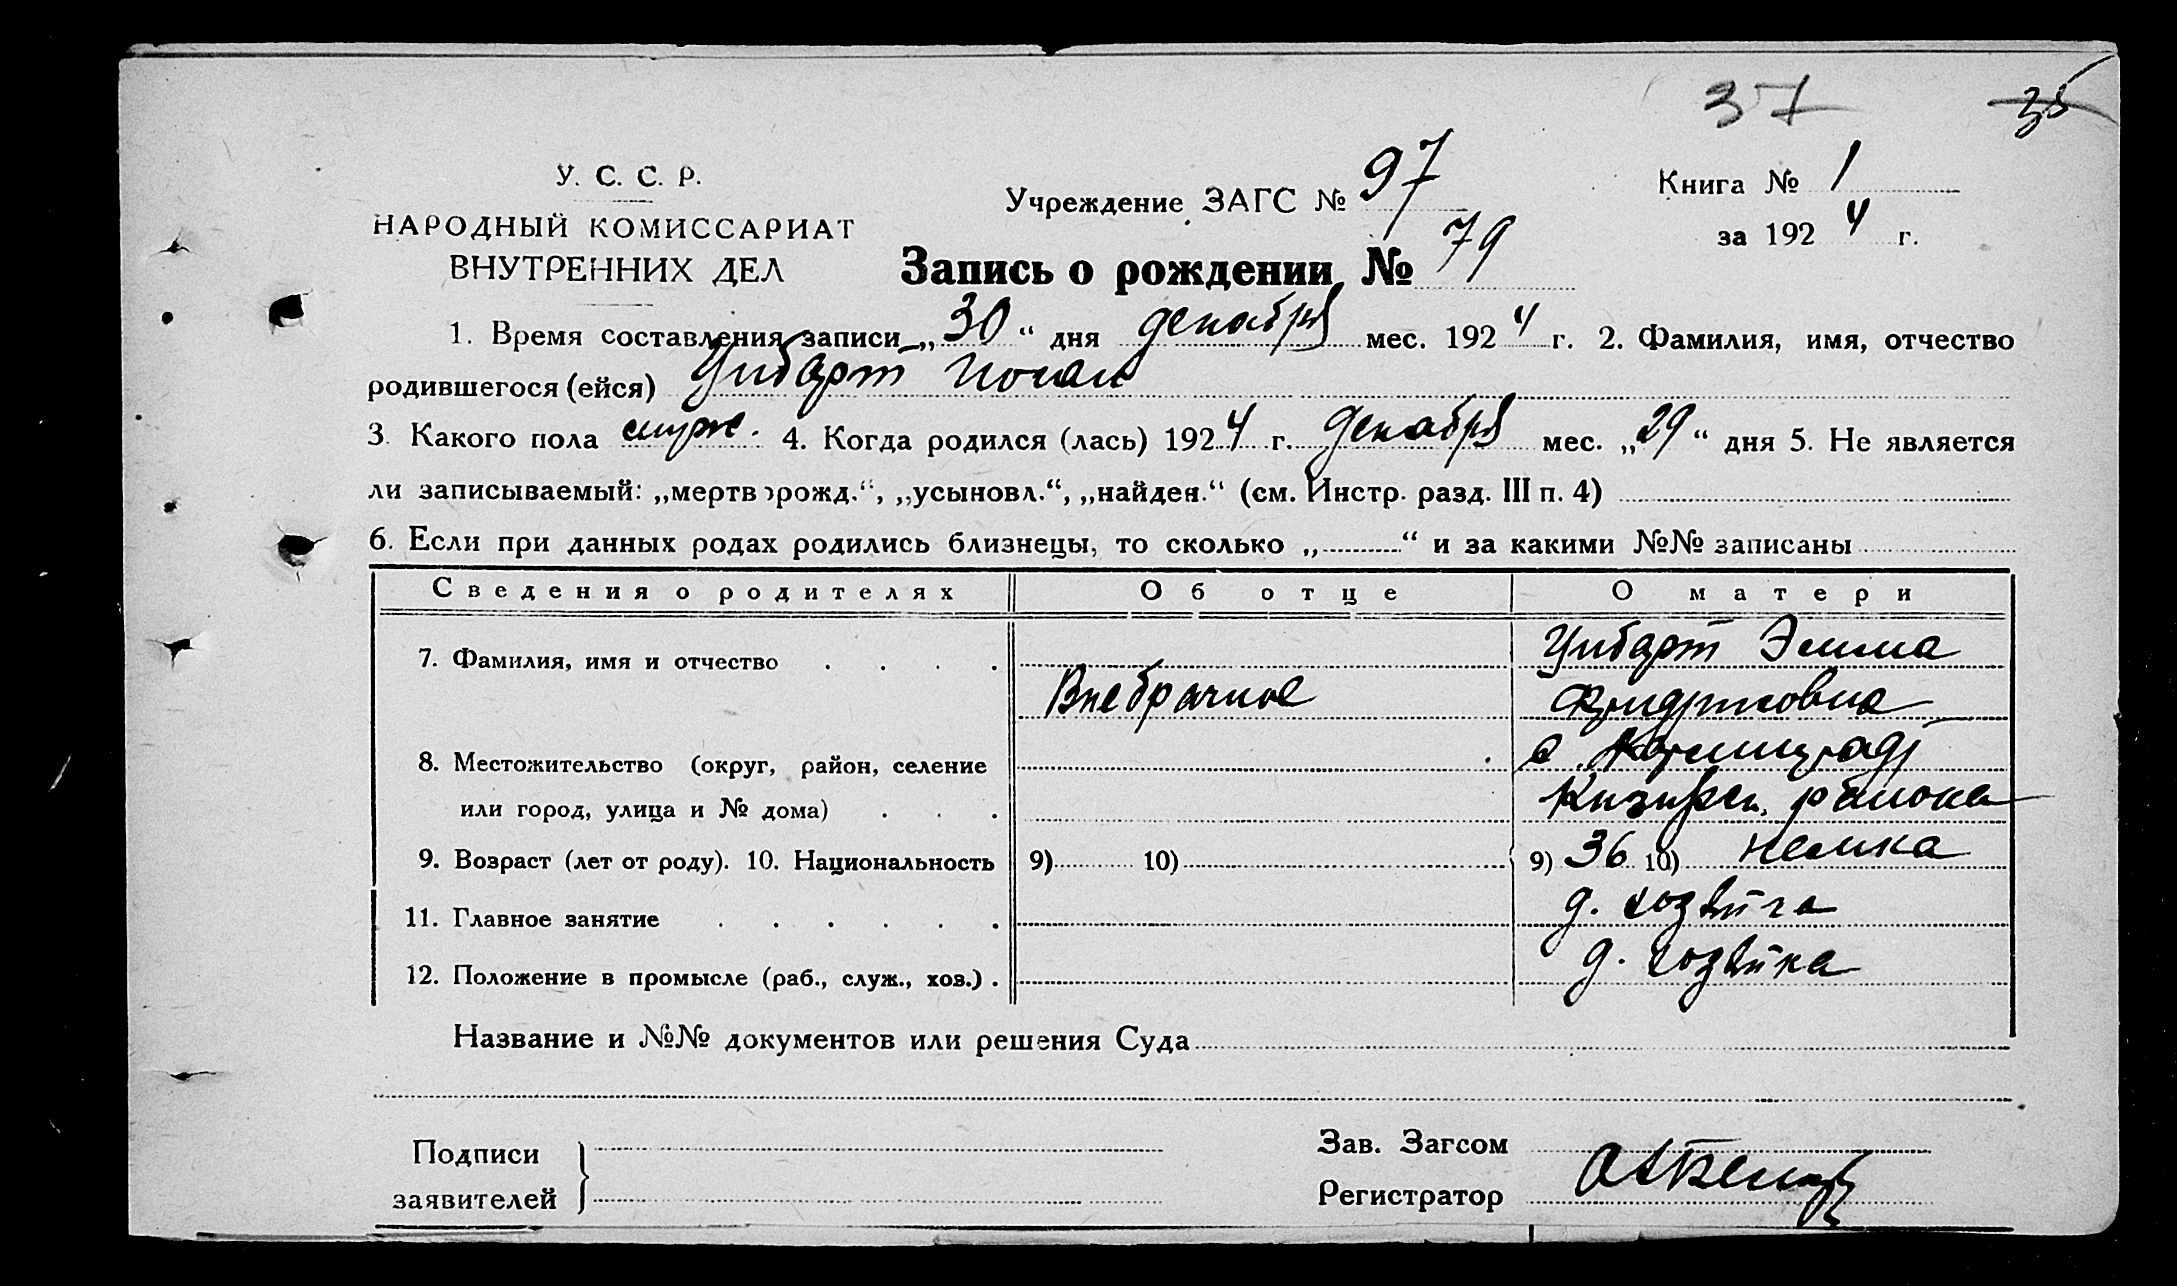 37 36
У. С. С. Р.
НАРОДНЫЙ КОМИССАРИАТ
ВНУТРЕННИХ ДЕЛ
Учреждение ЗАГС № 97
Книга № 1
за 1924 г.
Запись о рождении № 79
1. Время составления записи „30“ дня декабря мес. 1924 г. 2. Фамилия, имя, отчество
родившегося (ейся) Унгарт Иоган
3. Какого пола муж. 4. Когда родился (лась) 1924 г. декабря мес. „29“ дня 5. Не является
ли записываемый: „мертворожд.“, „усыновл.“, „найден.“ (см. Инстр. разд. III п. 4)
6. Если при данных родах родились близнецы, то сколько „ “ и за какими №№ записаны
Сведения о родителях Об отце О матери
7. Фамилия, имя и отчество Эмма
Внебрачное
8. Местожительство (округ, район, селение
или город, улица и № дома) района
9. Возраст (лет от роду). 10. Национальность 9) 10) 9) 36 10) немка
11. Главное занятие д. хозяйка
12. Положение в промысле (раб., служ., хоз.) д. хозяйка
Название и №№ документов или решения Суда
Подписи
заявителей
Зав. Загсом
Регистратор